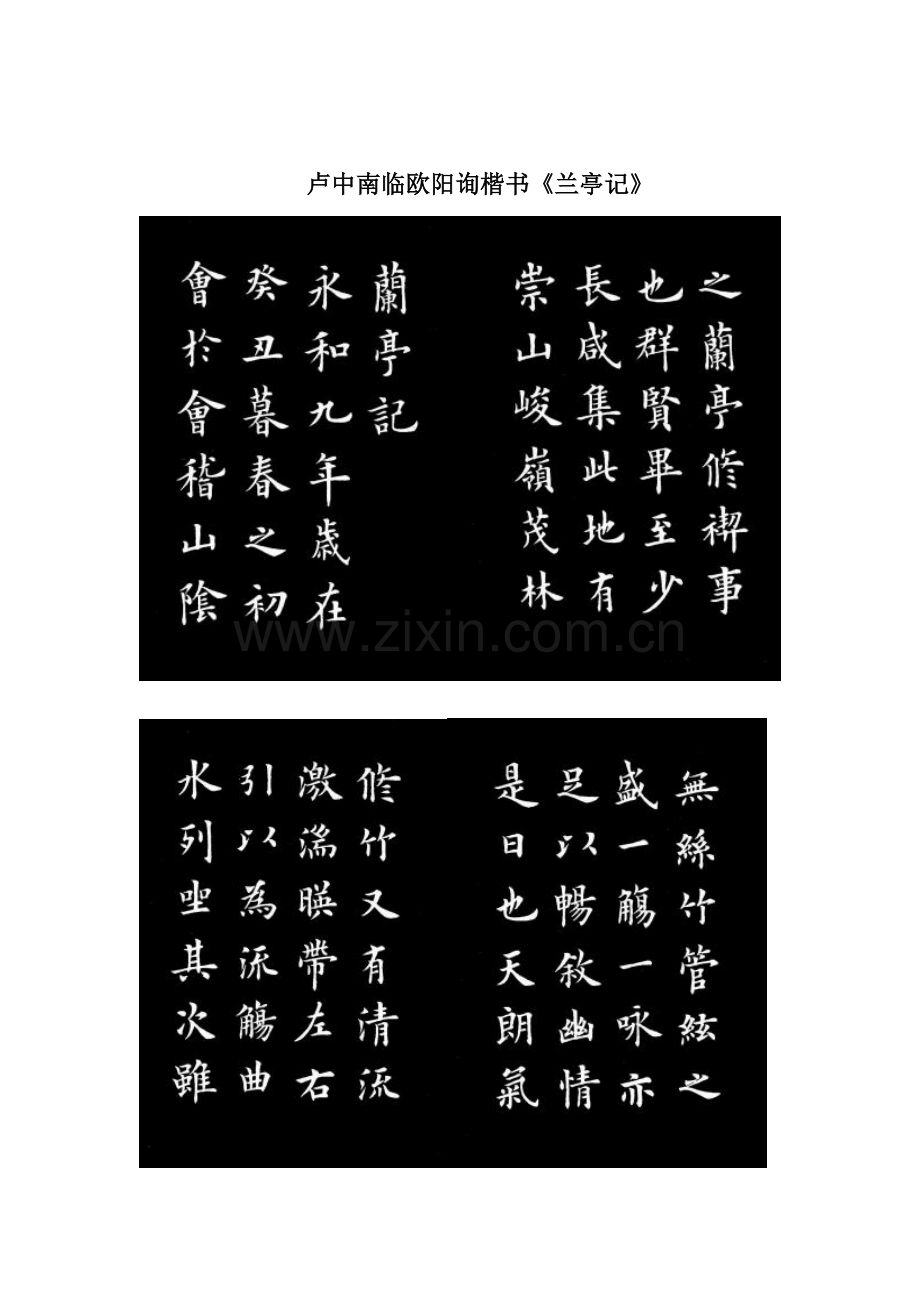 卢中南临欧阳询楷书《兰亭记》
蘭亭記
永和九年歲在
癸丑暮春之初
會於會稽山陰
之蘭亭修禊事
也群賢畢至少
長咸集此地有
崇山峻嶺茂林
www.zixin.com.cn
修竹又有清流
激湍暎帶左右
引以為流觴曲
水列坐其次雖
無絲竹管絃之
盛一觴一咏亦
足以暢敘幽情
是日也天朗氣